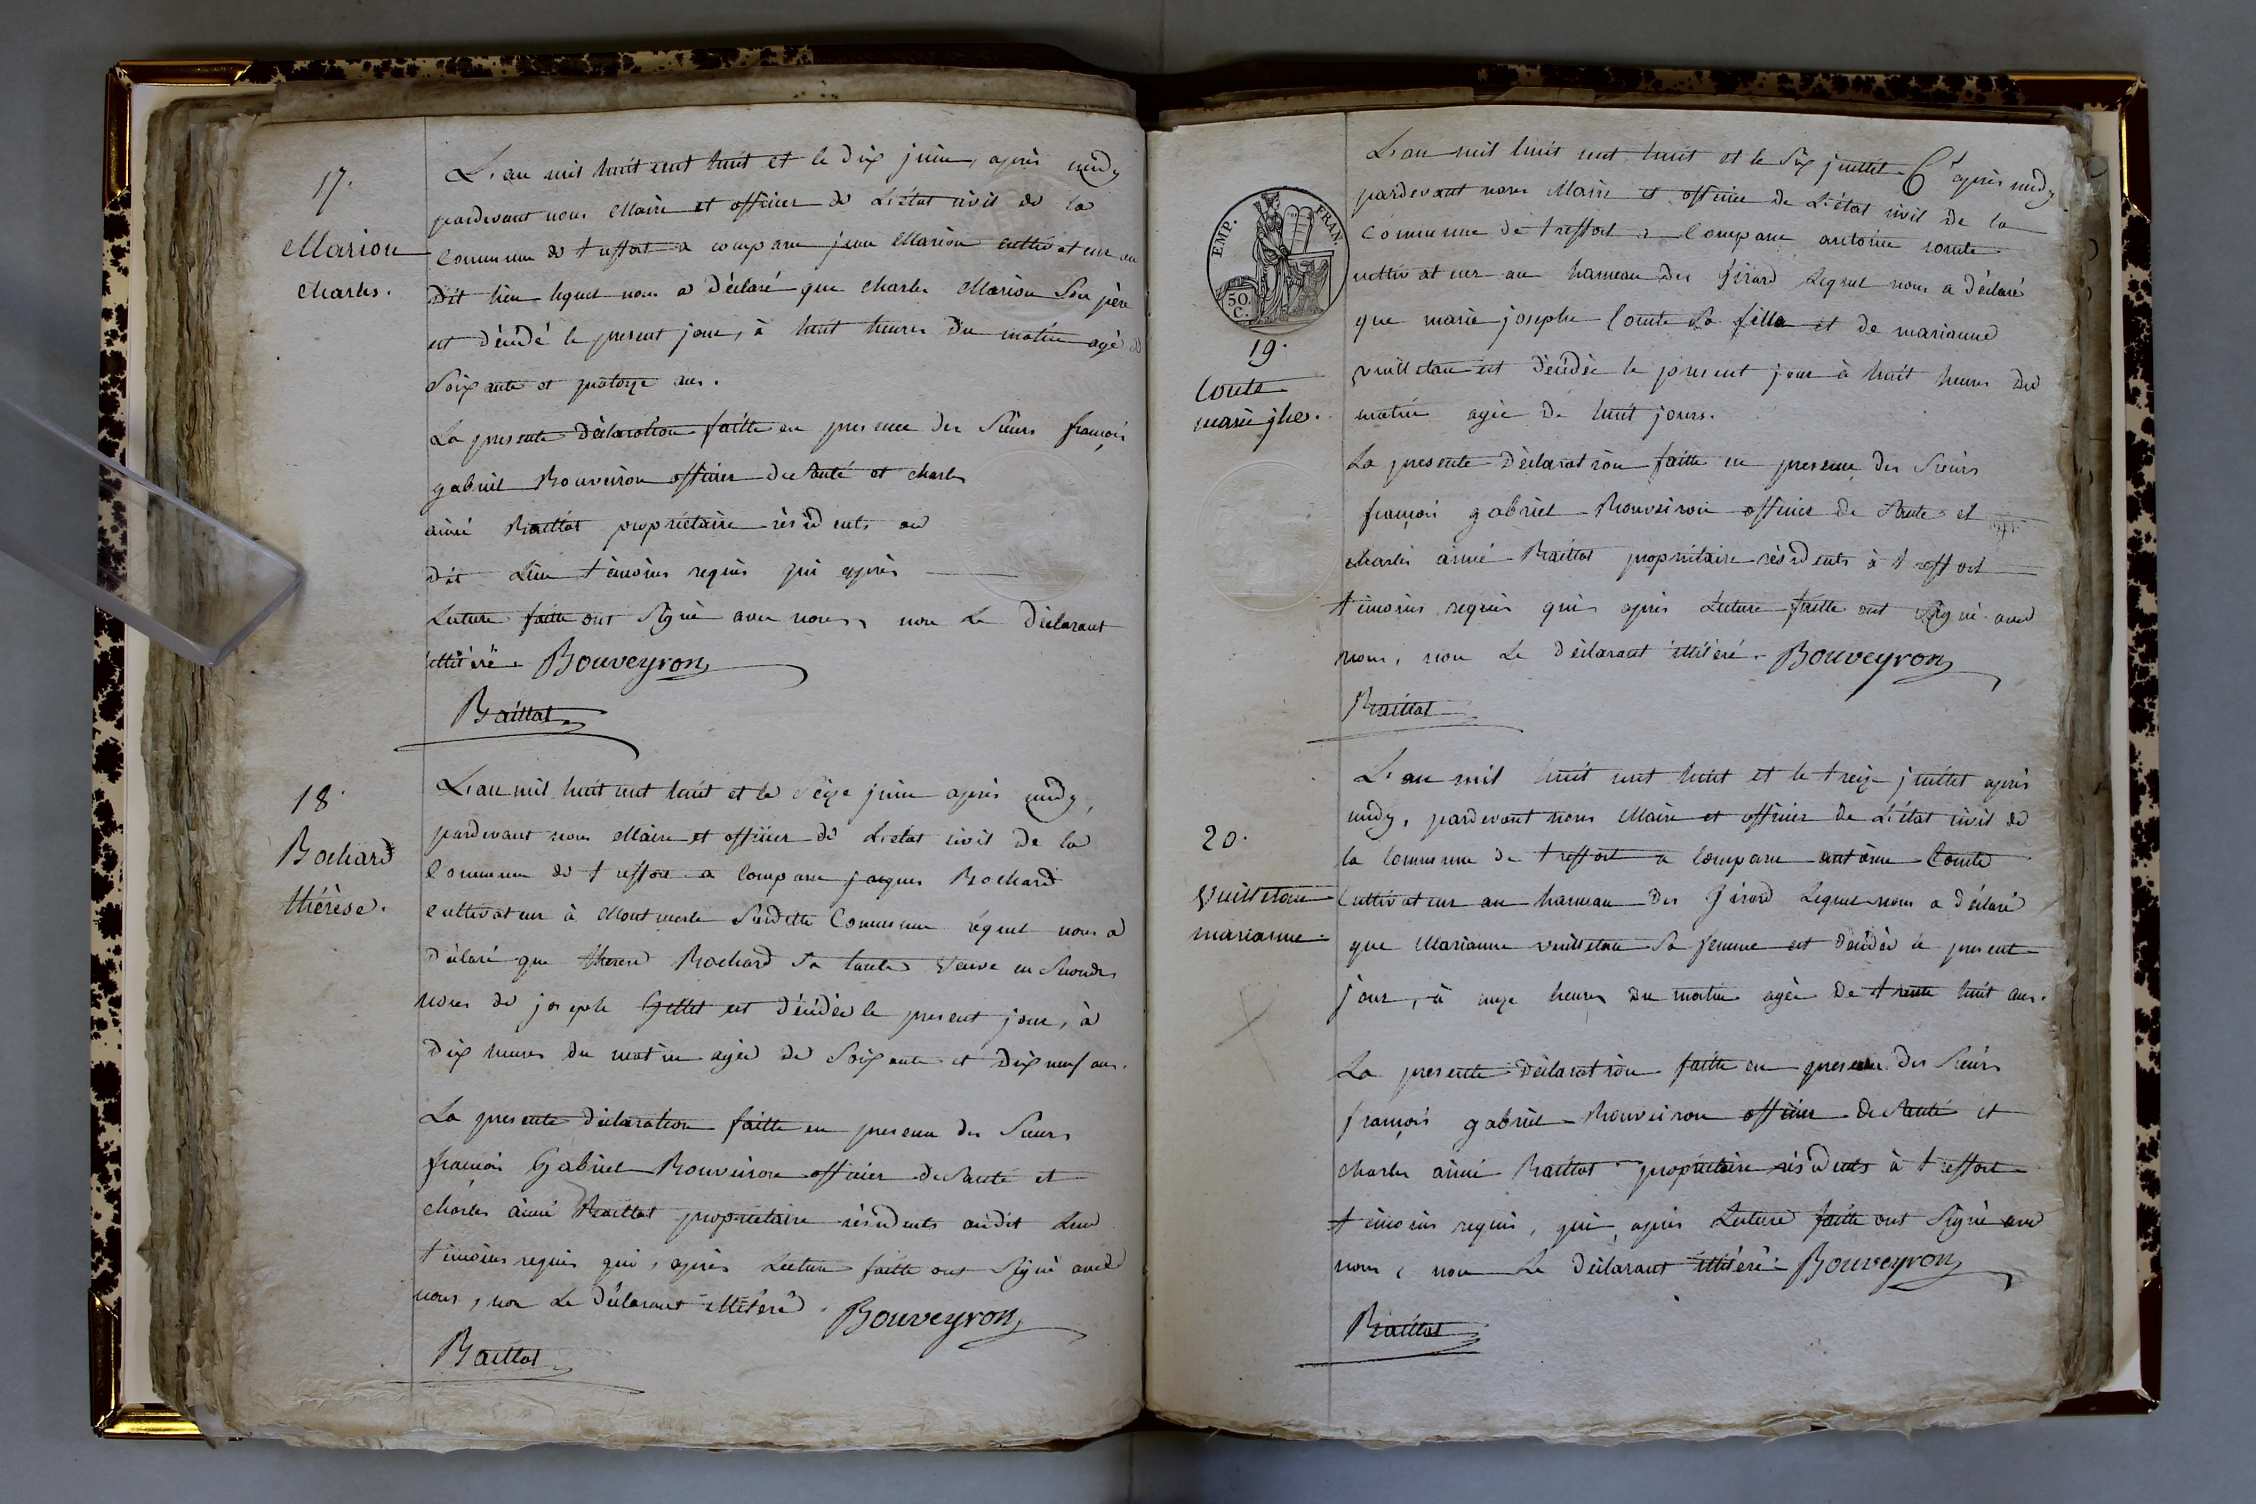 17.
Marion
charles.
L'an mil huit cent huit et le dix juin, après midy
pardevant nous Maire et officier de L'état civil de la
Commune de treffort a comparu jean Marion cultivateur au
dit lieu lequel nous a déclaré que charles Marion Son père
est décédé le present jour, à huit heures du matin agé de
Soixante et quatorze ans.
La presente déclaration faitte en presence des Sieurs françois
gabriel Bouveiron officier de Santé et charles
aimé Baillat propriétaire résidents au
dit Lieu témoins requis qui après
Lecture faitte ont Signé avec nous, non Le déclarant
illitéré. Bouveyron
Baillat
18.
Bochard
thérèse.
L'an mil huit cent huit et le seize juin après midy,
pardevant nous Maire et officier de L'état civil de la
Commune de treffort a comparu jaques Bochard
cultivateur à Montmerle Susditte Commune lequel nous a
déclaré que therese Bochard Sa tante Veuve en Secondes
noces de joseph Gillet est décédée le present jour, à
dix heures du matin agée de Soixante et dix neuf ans.
La presente déclaration faitte en presence des Sieurs
françois Gabriel Bouveiron officier de Santé et
charles aimé Baillat propriétaire résidents audit Lieu
témoins requis qui, après Lecture faitte ont Signé avec
nous, non Le déclarant illitéré. Bouveyron
Baillat
EMP. FRAN.
50.
C.
19.
Comte
marie jhe.
L'an mil huit cent huit et le Six juillet 6 après midy
pardevant nous Maire et officier de L'état civil de la
Commune de treffort a Comparu antoine comte
cultivateur au hameau des Girard Lequel nous a déclaré
que marie josephe Comte Sa fille et de marianne
vuilletan est décédée le present jour à huit heures du
matin agée de huit jours.
La presente déclaration faitte en presence des Sieurs
françois gabriel Bouveiron officier de Santé et
charles aimé Baillat propriétaire résidents à treffort
témoins requis qui après Lecture faitte ont Signé avec
nous, non Le déclarant illitéré. Bouveyron
Baillat
20.
Vuilletan
marianne.
L'an mil huit cent huit et le treize juillet après
midy, pardevant nous Maire et officier de L'état civil de
la Commune de treffort a Comparu antoine Comte
Cultivateur au hameau des Girard Lequel nous a déclaré
que Marianne vuilletan Sa femme est décédée le present
jour, à onze heures du matin agée de trente huit ans.
La presente déclaration faitte en presence des Sieurs
françois gabriel Bouveiron officier de Santé et
charles aimé Baillat propriétaire résidents à treffort
témoins requis, qui après Lecture faitte ont Signé avec
nous, non Le déclarant illitéré. Bouveyron
Baillat